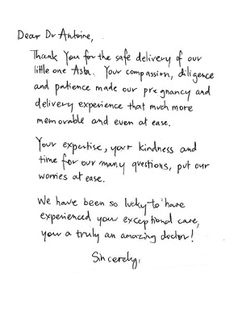 Dear Dr Antoine,
Thank You for the safe delivery of our
little one Asta. Your compassion, diligence
and patience made our pregnancy and
delivery experience that much more
memorable and even at ease.
Your expertise, your kindness and
time for our many questions, put our
worries at ease.
We have been so lucky to have
experienced your exceptional care,
you a truly an amazing doctor!
Sincerely,